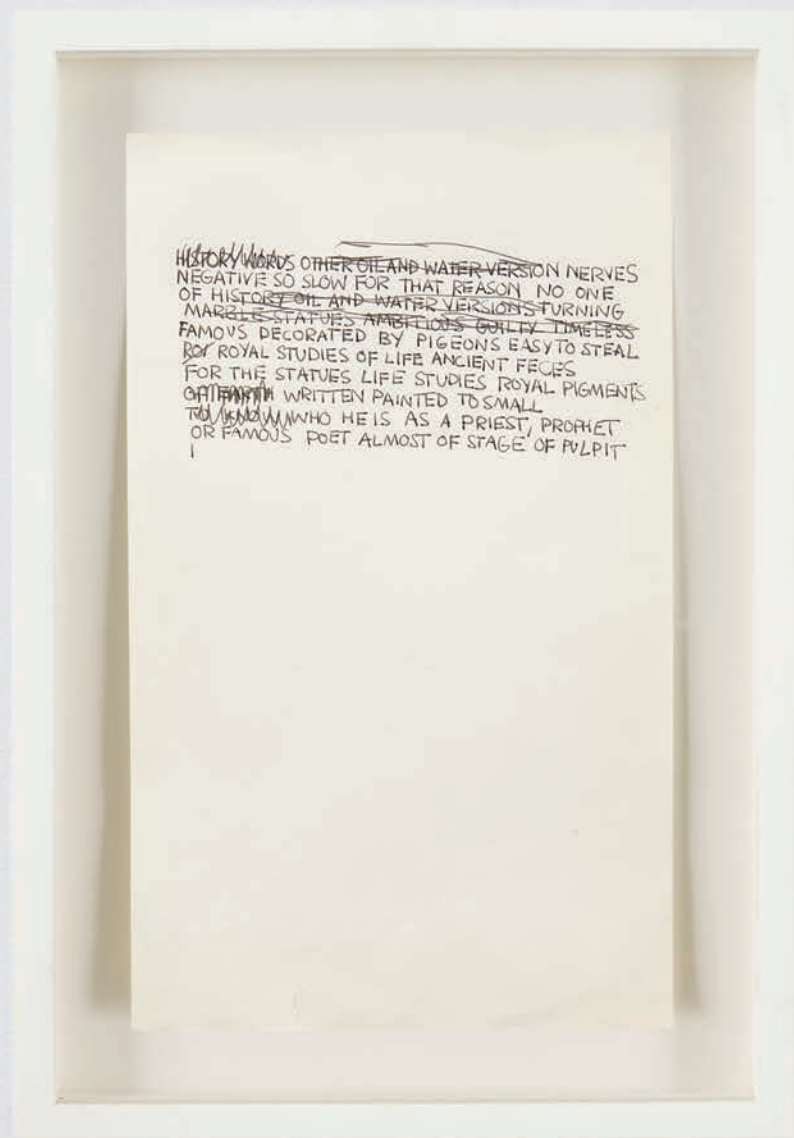 HISTORY WORDS OTHER OIL AND WATER VERSION NERVES
NEGATIVE SO SLOW FOR THAT REASON NO ONE
OF HISTORY OIL AND WATER VERSIONS TURNING
MARBLE STATUES AMBITIOUS GUILTY TIMELESS
FAMOUS DECORATED BY PIGEONS EASY TO STEAL
ROY ROYAL STUDIES OF LIFE ANCIENT FECES
FOR THE STATUES LIFE STUDIES ROYAL PIGMENTS
WRITTEN PAINTED TO SMALL
TO KNOW WHO HE IS AS A PRIEST, PROPHET
OR FAMOUS POET ALMOST OF STAGE OF PULPIT
I